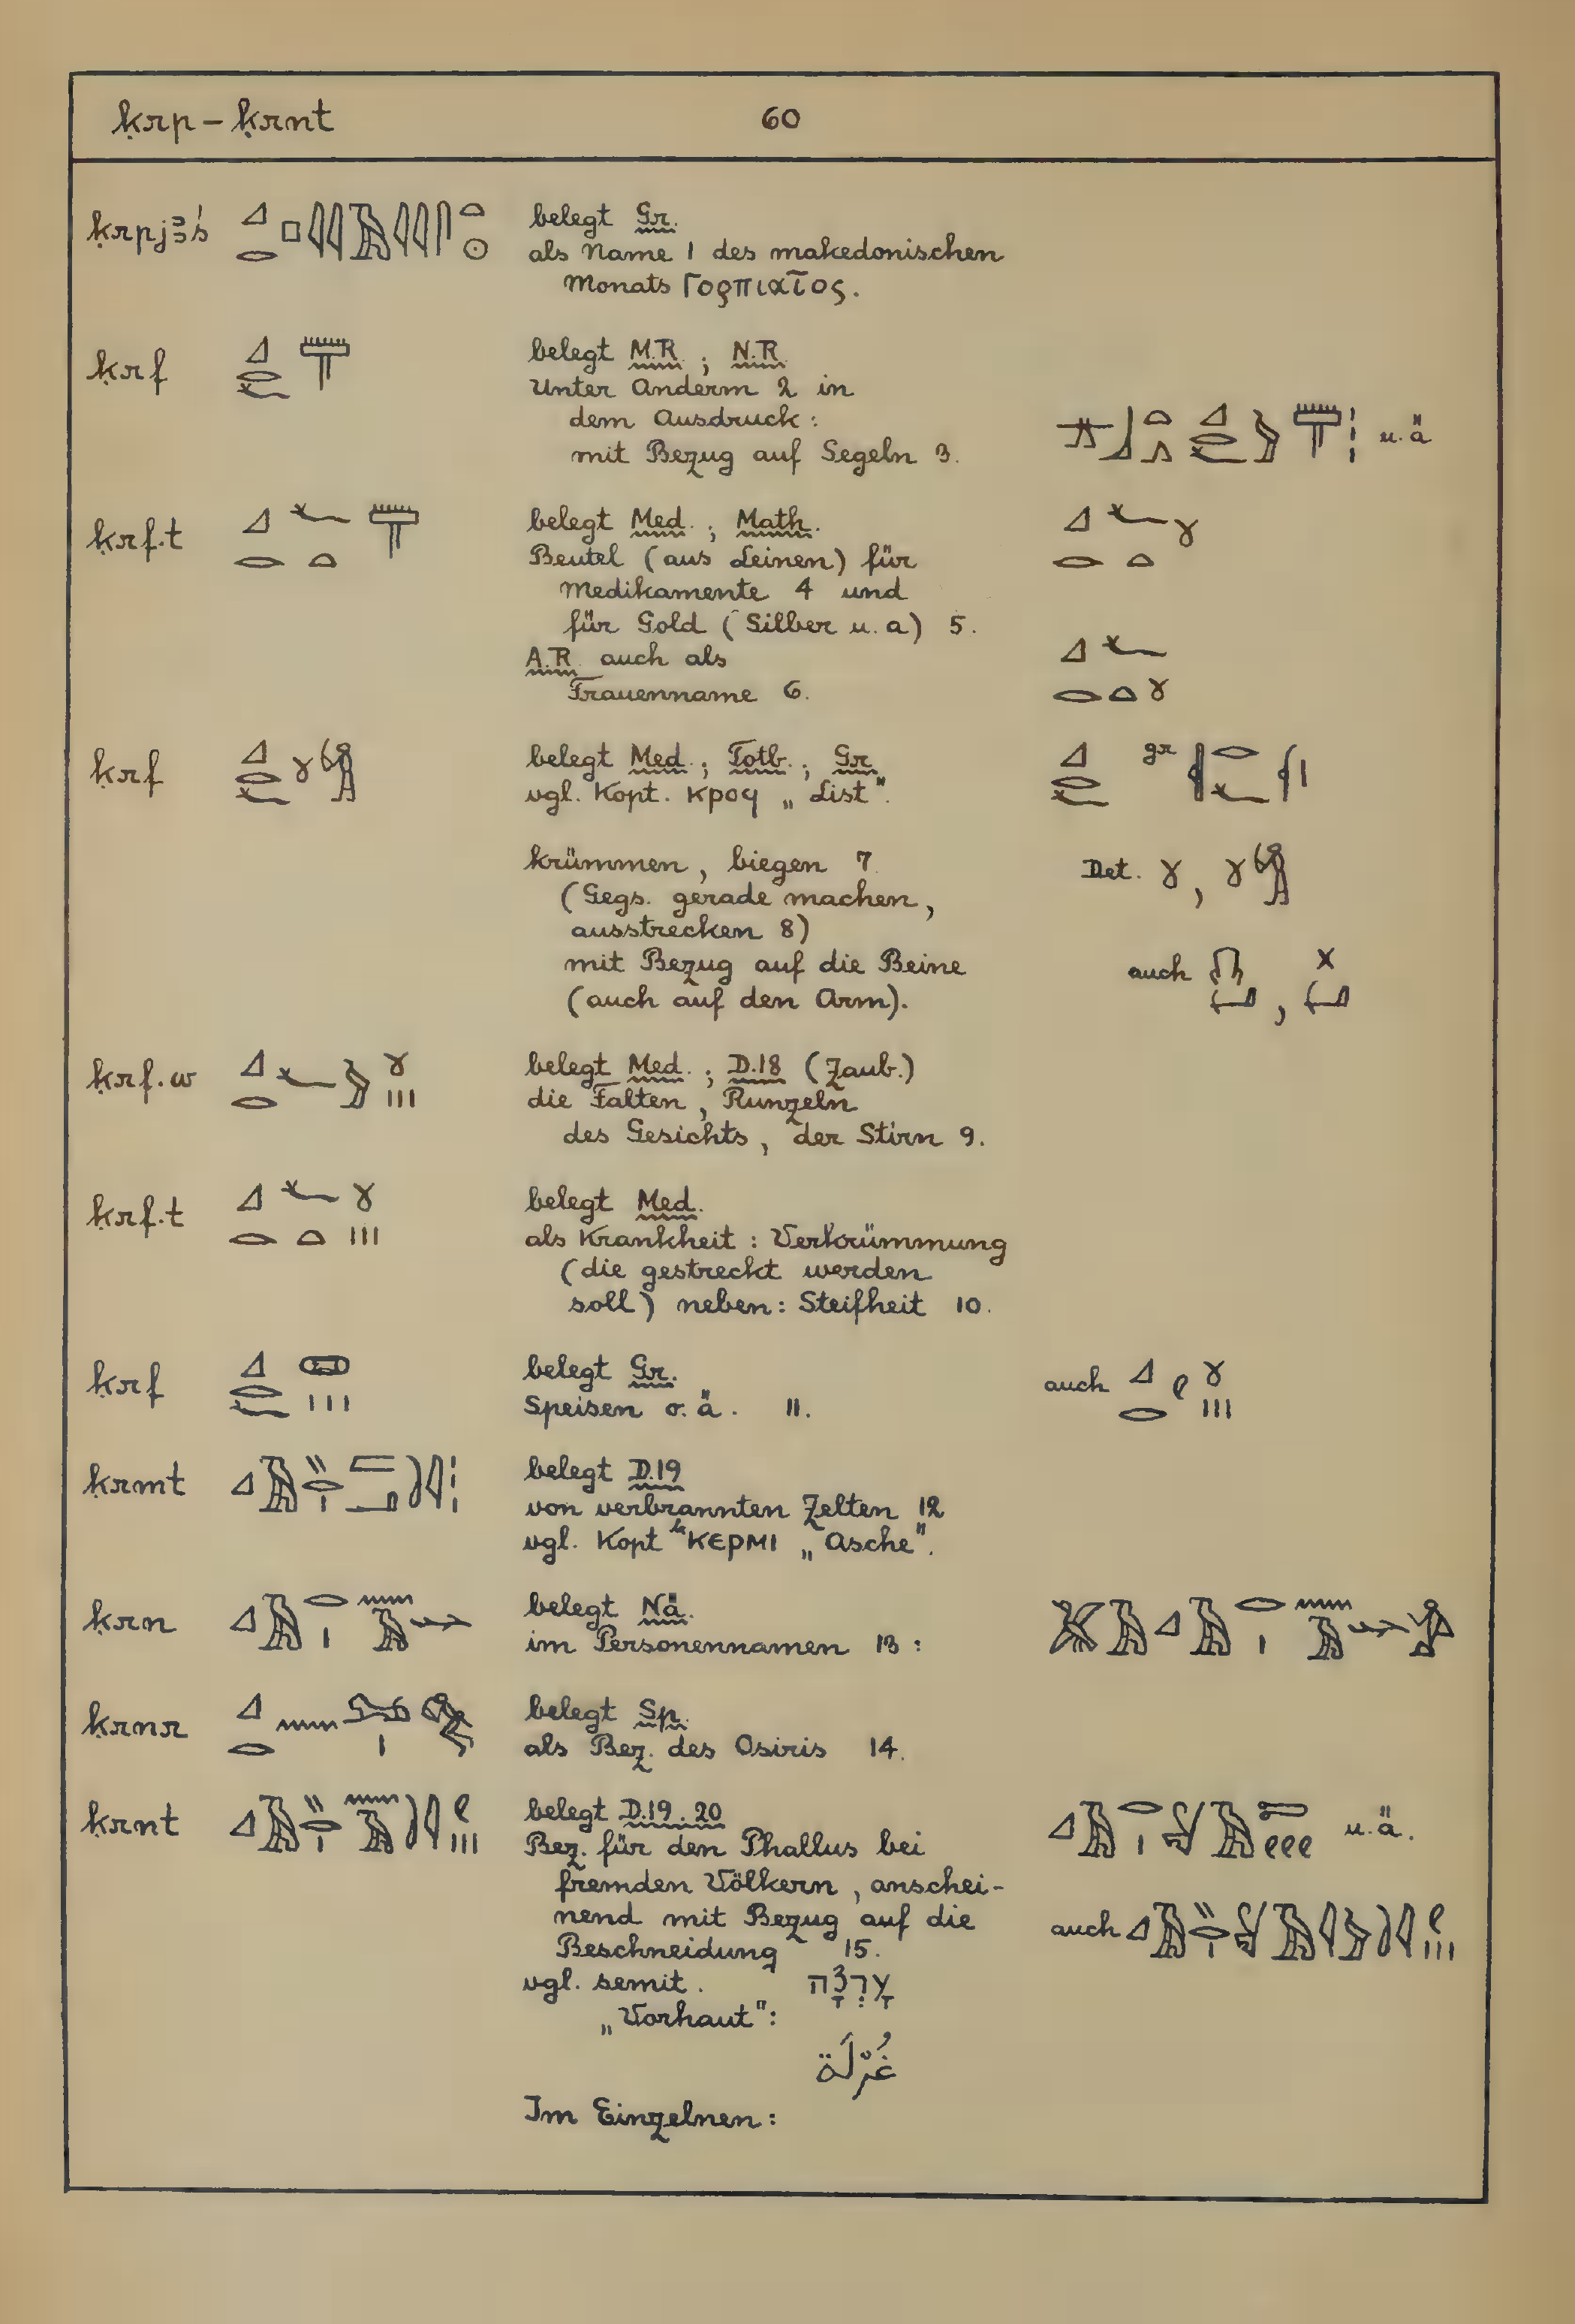 ḳrp – ḳrnt 60
ḳrpjꜣś belegt Gr.
als Name 1 des makedonischen
Monats Γορπιαῖος.
ḳrf belegt M.R.; N.R.
Unter Anderm 2 in
dem Ausdruck:
mit Bezug auf Segeln 3. u. ä
ḳrf.t belegt Med.; Math.
Beutel (aus Leinen) für
Medikamente 4 und
für Gold (Silber u. a) 5.
A.R. auch als
Frauenname 6.
ḳrf belegt Med.; Totb.; Gr. gr
vgl. Kopt. ⲕⲣⲟϥ „List".
krümmen, biegen 7. Det. ,
(Gegs. gerade machen,
ausstrecken 8)
mit Bezug auf die Beine auch ,
(auch auf den Arm).
ḳrf.w belegt Med.; D.18 (Zaub.)
die Falten, Runzeln
des Gesichts, der Stirn 9.
ḳrf.t belegt Med.
als Krankheit: Verkrümmung
(die gestreckt werden
soll) neben: Steifheit 10.
ḳrf belegt Gr. auch
Speisen o. ä. 11.
ḳrmt belegt D.19
von verbrannten Zelten 12
vgl. Kopt ⲕⲉⲣⲙⲓ „Asche".
ḳrn belegt Nä.
im Personennamen 13:
ḳrnr belegt Sp.
als Bez. des Osiris 14.
ḳrnt belegt D.19.20 u. ä.
Bez. für den Phallus bei
fremden Völkern, anschei-
nend mit Bezug auf die auch
Beschneidung 15.
vgl. semit.
„Vorhaut":
غُرْلَة
Im Einzelnen: